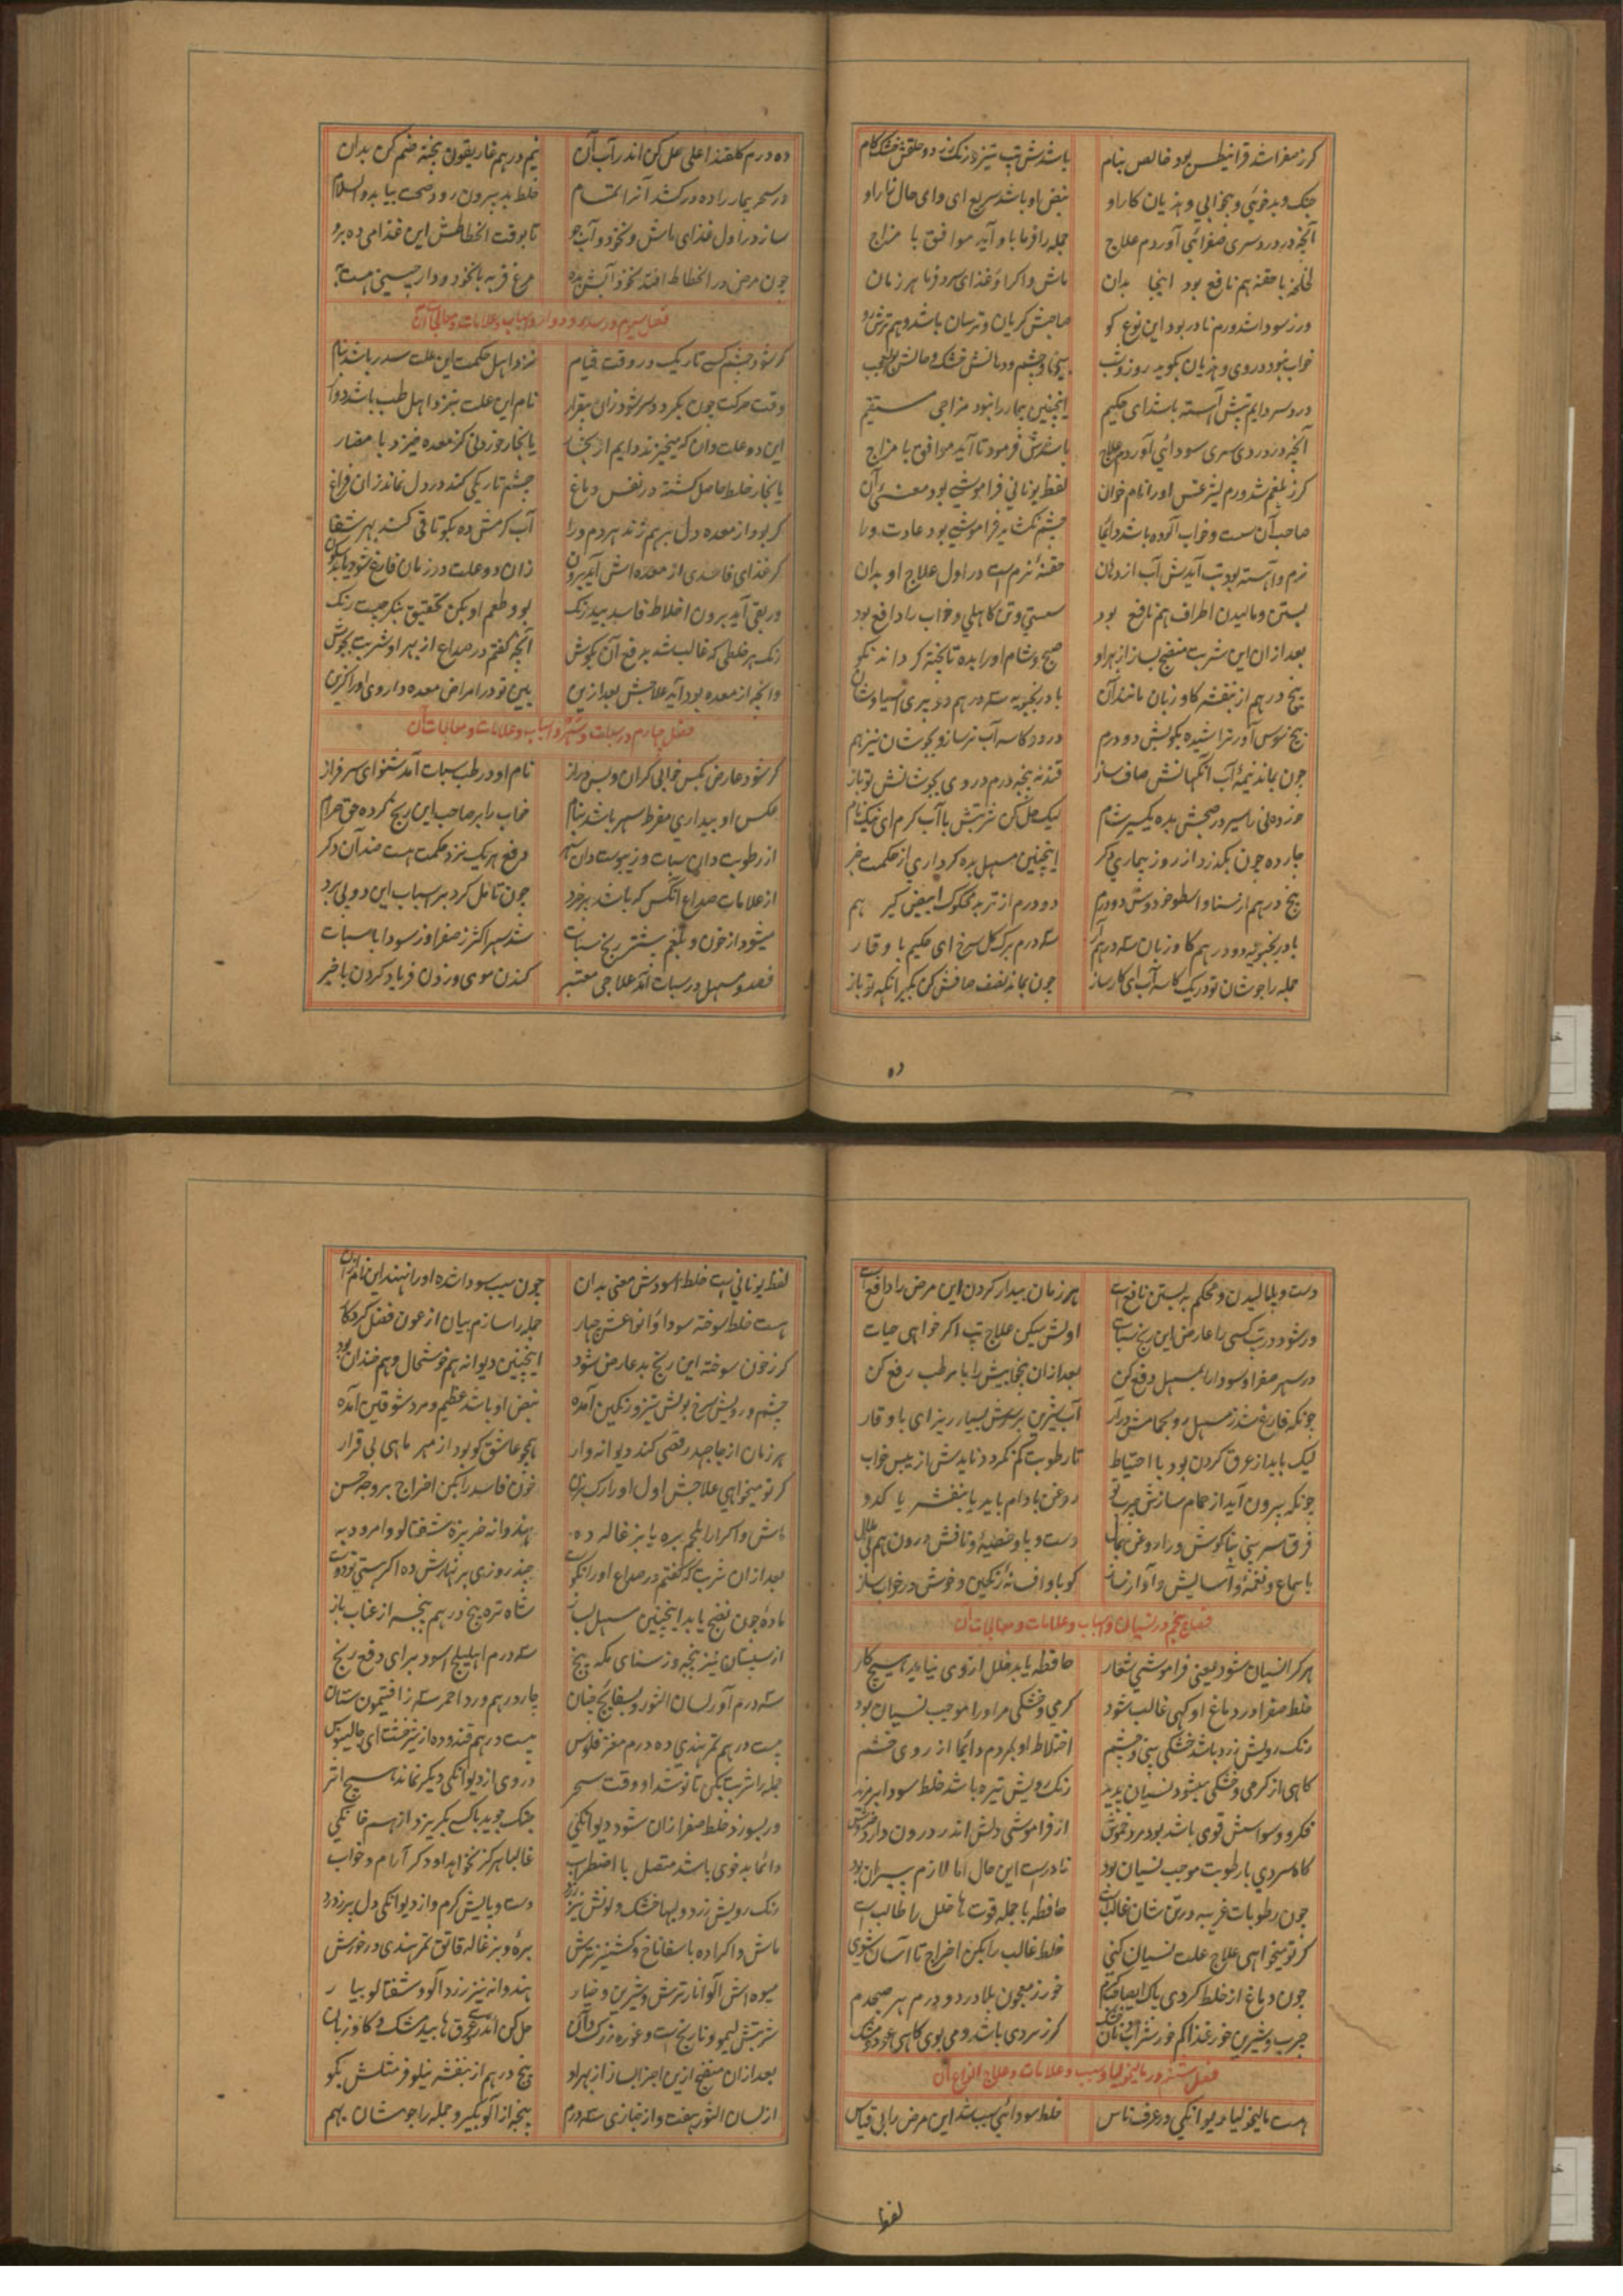 کر ز صفرا شد قرانیطس بود خالص بنام باشدش تب تیز و رنک زرد و حلقش خشک کام
جنک و بدخوئی و بیخوابی و هذیان کار او نبض او باشد سریع ای وای حال زار او
آنچه در درد سری صفرائی آوردم علاج جمله را فرما باو آید موافق با مزاج
لخلخه با حقنه هم نافع بود اینجا بدان ماش واکرا و غذای سرد فرما هر زمان
ور ز سودا شد ورم نادر بود این نوع کو صاحبش کریان و ترسان باشد و هم ترش رو
خواب نبود در وی و هذیان بکوید روز و شب چشم و دهانش خشک و حالش بوالعجب
درد سر دایم تبش آهسته باشد ای حکیم اینچنین بیمار را نبود مزاجی مستقیم
آنچه در درد سری سودائی آوردم علاج باشدش فرمود تا آید موافق با مزاج
کر ز بلغم شد ورم لیثرغس او را نام خوان لفظ یونانی فراموشی بود معنی آن
صاحب آن سست و خواب آلوده باشد دائما چشم نکشاید فراموشی بود عادت ورا
نرم و آهسته بود تب آیدش آب از دهان حقنهٔ نرم است در اول علاج او بدان
بستن و مالیدن اطراف هم نافع بود سستی و تن کاهلی و خواب را دافع بود
بعد ازان این شربت منضج بساز از بهر او صبح و شام او را بده تا پخته کرداند نکو
پنج درهم از بنفشه کاو زبان مانند آن بادرنجبویه سه درهم دو پرسیاوشان
بیخ سوس آور تراشیده بکوبش دو درم در دو کاسه آب تر ساز و بجوشان نیز هم
چون بماند نیمهٔ آب آنکهانش صاف ساز قند نه پنجه درم در وی بجوشانش تو باز
خوردنی را سیر در صبحش بده یکسر شام لیک حل کن شربتش با آب کرم ای نیکنام
چارده چون بکذرد از روز بیماری دکر اینچنین مسهل بده کر داری از حکمت خبر
پنج درهم از سنا و اسطوخودوس دو درم دو درم از تربد محکوک ابیض کیر هم
بادرنجبویه دو درهم کاو زبان سه درهم سه درم برک کل سرخ ای حکیم با وقار
جمله را جوشان تو در یک کاسه آب ای کارساز چون بماند نصف صافش کن بکیر آنکه تو باز
ده
ده درم کلقند اعلی حل کن اندر آب آن نیم درهم غاریقون پخته ضم کن بدان
در سحر بیمار را ده در کشد آنرا تمام خلط بد بیرون رود صحت بیابد والسلام
ساز در اول غذای ماش و نخود و آب جو تا بوقت انحطاطش این غذا می ده برو
چون مرض در انحطاط افتد نخود آبش بده مرغ فربه با نخود و دارچینی هست به
فصل سیم در سدر و دوار و اسباب و علامات و معالجات آن
کر شود چشم کسی تاریک در وقت قیام نزد اهل حکمت این علت سدر باشد بنام
وقت حرکت چون بکردد سر شود زان بیقرار نام این علت بنزد اهل طب باشد دوار
این دو علت دان که میخیزند دایم از بخار یا بخار خوردنی کز معده خیزد با مضار
یا بخار خلط حاصل کشته در نفس دماغ چشم تاریکی کند در دل نماند زان فراغ
کر بود از معده دل بر هم زند هر دم ورا آب کرمش ده بکو تا قی کند بهر شفا
کر غذای فاسدی از معده‌اش آید برون زان دو علت در زمان فارغ شود یابد سکون
ور بقی آید برون اخلاط فاسد بید رنک بو و طعم او بکن تحقیق بنکر چیست رنک
رنک هر خلطی که غالب شد بدفع آن بکوش آنچه کفتم در صداع از بهر او شربت بجوش
وانچه از معده بود آید علاجش بعد ازین بین تو در امراض معده داروی او را کزین
فصل چهارم در سبات و سهر و اسباب و علامات و معالجات آن
کر شود عارض بکس خوابی کران و بس دراز نام او در طب سبات آمد شنو ای سرفراز
عکس او بیداری مفرط سهر باشد بنام خواب را بر صاحب این رنج کرده حق حرام
از رطوبت دان سبات و ز یبوست دان سهر دفع هر یک نزد حکمت هست ضد آن دکر
از علامات صداع آنکس که باشد بر خرد چون تامل کرد بر اسباب این دو پی برد
میشود از خون و بلغم بیشتر رنج سبات شد سهر اکثر ز صفرا و ز سودا با سبات
فصد و مسهل در سبات آمد علاجی معتبر کندن موی و زدن فریاد کردن با خبر
دست و پا مالیدن و محکم به بستن نافع است هر زمان بیدار کردن این مرض را دافع است
ور شود در تب کسی را عارض این رنج سبات اولش میکن علاج تب اکر خواهی حیات
در سهر صفرا و سودا را بمسهل دفع کن بعد ازان بیخوابیش را با مرطب رفع کن
چونکه فارغ شد ز مسهل رو بحمامش در آر آب شیرین بر سرش بسیار ریز ای با وقار
لیک باید از عرق کردن بود با احتیاط تا رطوبت کم نکردد ناید ش از یبس خواب
چونکه بیرون آید از حمام سازش چرب تو روغن بادام باید یا بنفشه یا کدو
فرق سر بینی بناکوش ورا روغن بمال دست و پا و خصیهٔ و نافش درون هم بی ملال
با سماع و نغمهٔ و آسایش و آواز ساز کو باو افسانهٔ رنکین و خوش در خواب ساز
فصل پنجم در نسیان و اسباب و علامات و معالجات آن
هر کرا نسیان شود یعنی فراموشی شعار حافظه یابد خلل از وی نیاید هیچ کار
خلط صفرا در دماغ او کهی غالب شود کرمی و خشکی مر او را موجب نسیان بود
رنک رویش زرد باشد خشکی بینی و چشم اختلاط او بمردم دائما از روی خشم
کاهی از کرمی و خشکی میشود نسیان پدید رنک رویش تیره باشد خلط سودا بر مزید
فکر و وسواسش قوی باشد بود مرد خموش از فراموشی دلش اندر درون دارد خروش
کاه سردی با رطوبت موجب نسیان بود نادرست این حال اما لازم پیران بود
چون رطوبات غریبه در تن شان غالب است حافظه با جمله قوت ها خلل را طالب است
کر تو میخواهی علاج علت نسیان کنی خلط غالب را بکن اخراج تا آسان شوی
چون دماغ از خلط کردی پاک خور ز معجون بلادر دو درم هر صبحدم
چرب و شیرین خور غذا کم خور شراب کر ز سردی باشد و می بوی کاهی عود و مشک
فصل ششم در مالیخولیا و سبب و علامات و علاج انواع آن
هست مالیخولیا دیوانکی در عرف ناس خلط سودائی سبب شد این مرض را بی قیاس
لفظ
لفظ یونانی است خلط اسودش معنی بدان چون سبب سودا شده او را نهند این نام ازان
هست خلط سوخته سودا و انواعش چهار جمله را سازم بیان از عون فضل کردکار
کر ز خون سوخته این رنج بد عارض شود اینچنین دیوانه هم خوشحال و هم خندان بود
چشم و رویش سرخ بولش تیز و رنکین آمده نبض او باشد عظیم و مرد شوقین آمده
هر زمان از جا جهد رقصی کند دیوانه وار همچو عاشق کو بود از مهر ماهی بی قرار
کر تو میخواهی علاجش اول او را رک بزن خون فاسد را بکن اخراج بر وجه حسن
ماش واکرا با بلحم بره یا بزغاله ده هندوانه خربزه شفتالو و امرود به
بعد ازان شربت که کفتم در صداع او را نکو چند روزی بر نهارش ده اکر هستی تو
مادهٔ چون نضج یابد اینچنین مسهل بساز شاه تره پنج درهم پنجه از عناب باز
از سپستان نیز پنجه وز سنای مکه پنج سه درم اهلیلج اسود برای دفع رنج
سه درم آور لسان الثور و بسفایج چنان چار درهم ورد احمر سه ز افتیمون ستان
بیست درهم تمر هندی ده درم مغز فلوس بیست درهم قند و ده از شیرخشت ای جالینوس
جمله را شربت بکن تا نوشد او وقت سحر در وی از دیوانکی دیکر نماند هیچ اثر
ور بسوزد خلط صفرا زان شود دیوانکی جنک جوید با کسی بکریزد از هم خانکی
دائما بدخوی باشد متصل با اضطراب غالبا هرکز نخواهد او دکر آرام و خواب
رنک رویش زرد و لبها خشک و بولش نیز زرد دست و پایش کرم و از دیوانکی دل پر ز درد
ماش واکرا ده باسفاناخ و کشنیز ترش بره و بزغاله قاتق تمر هندی در خورش
میوه‌اش آلو انار ترش و شیرین و خیار هندوانه نیز زردآلو و شفتالو بیار
شربتش لیمو و نارنج است و غوره زرشک حل کن اندر عرق ها بیدمشک و کاو زبان
بعد ازان منضج ازین اجزا بساز از بهر او پنج درهم از بنفشه نیلوفر مثلش بکو
از لسان الثور هفت و از خبازی سه درم پنجه از آلو بکیر و جمله را جوشان بهم